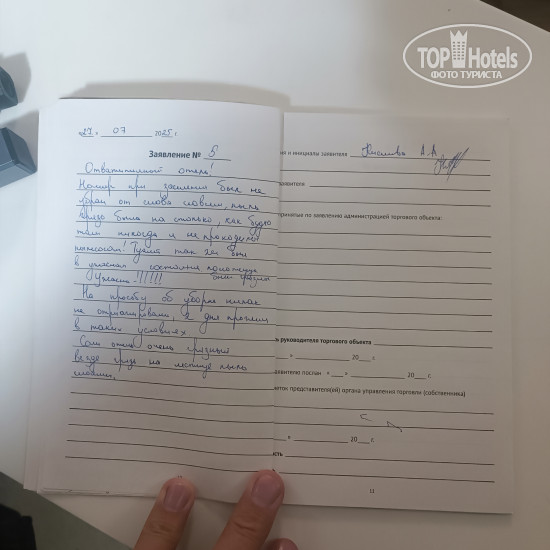 TOP Hotels
ФОТО ТУРИСТА
27 » 07 2025 г.
Заявление № 5
Отвратительный отель!
Номер при заселении был не
убран от слова совсем, пыль
везде была на столько, как будто
там никогда и не проходили
Туалет так же был
в ужасном состоянии
Ужасно!!!!!!
На просьбу об уборке никак
не отреагировали, 2 дня прожили
в таких условиях
Сам отель очень грязный
везде грязь на лестнице пыль
11
ия и инициалы заявителя А.А
заявителя
принятые по заявлению администрацией торгового объекта:
ь руководителя торгового объекта
» 20 г.
заявителю послан « » 20 г.
меток представителя(ей) органа управления торговли (собственника)
» 20 г.
ость
12